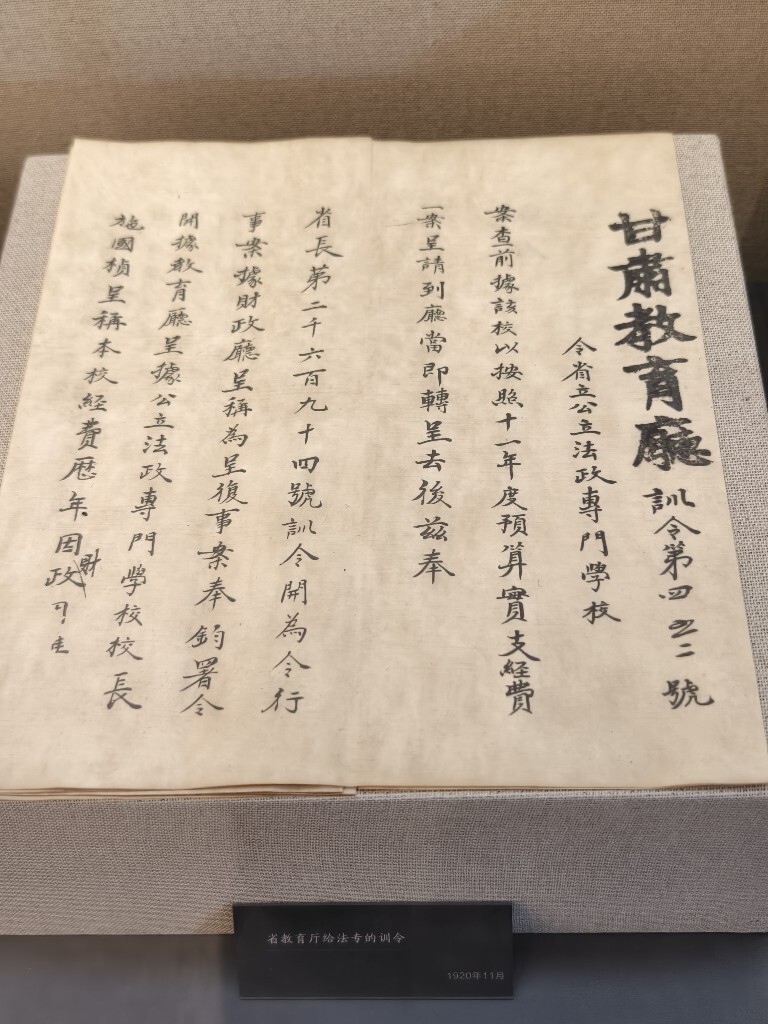 甘肅教育廳訓令第四五二號
令省立公立法政專門學校
案查前據該校以按照十一年度預算實支經費
一案呈請到廳當即轉呈去後兹奉
省長第二千六百九十四號訓令開為令行
事案據財政廳呈稱為呈復事案奉鈞署令
開據教育廳呈據公立法政專門學校校長
施國楨呈稱本校經費歷年因財政
省教育厅给法专的训令
1920年11月